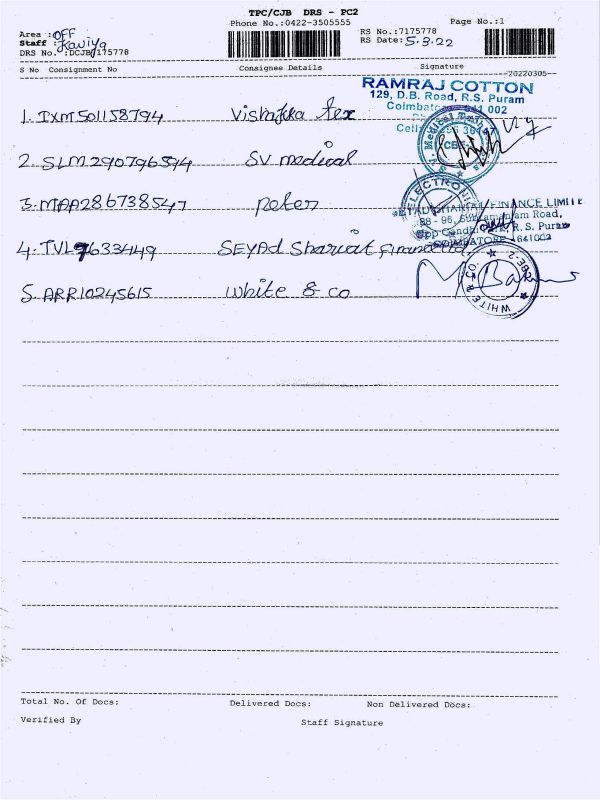 TPC/CJB DRS - PC2
Phone No.:0422-3505555
Page No.:1
Area : OFF
RS No.:7175778
Staff : Kaviya
RS Date: 5.3.22
DRS No. :DCJB175778
S No Consignment No Consignee Details Signature
20220305
RAMRAJ COTTON
129, D.B. Road, R.S. Puram
1. IXM501158794
2. SLM290796594 SV medical
3. MAA286738547 Peter
ELECTRONI
FINANCE LIMITE
88 - 96, Subramaniam Road,
R.S. Puram
COIMBATORE 641002
4. TVL79633449 SEYAd Shariat Finance
5. ARR10245615 White & Co
WHITE & CO.
CBE-2
Total No. Of Docs: Delivered Docs: Non Delivered Docs:
Verified By Staff Signature